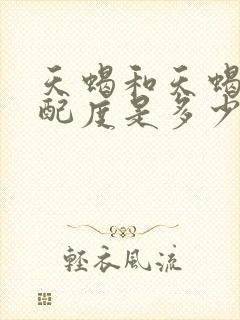 天蝎和天蝎
配度是多少
轻衣风流